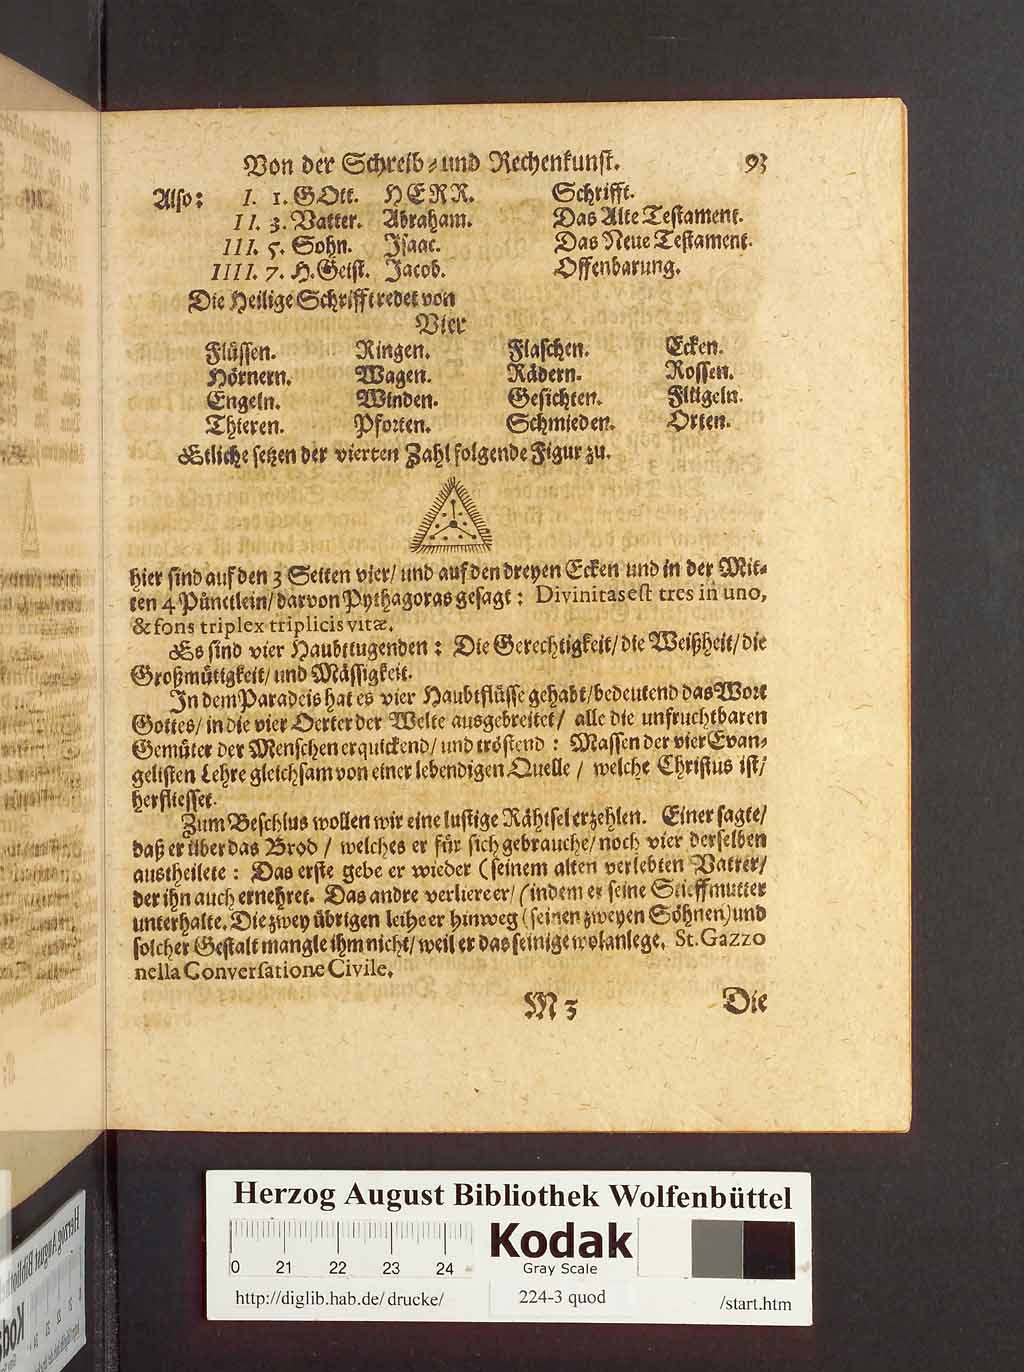 Von der Schreib- und Rechenkunst. 93
Also: I. 1. GOtt. HERR. Schrifft.
II. 3. Vatter. Abraham. Das Alte Testament.
III. 5. Sohn. Isaac. Das Neue Testament.
IIII. 7. H. Geist. Jacob. Offenbarung.
Die Heilige Schrifft redet von
Vier
Flüssen. Ringen. Flaschen. Ecken.
Hörnern. Wagen. Rädern. Rossen.
Engeln. Winden. Gesichten. Flügeln.
Thieren. Pforten. Schmieden. Orten.
Etliche setzen der vierten Zahl folgende Figur zu.
hier sind auf den 3 Seiten vier/ und auf den dreyen Ecken und in der Mit-
ten 4 Pünctlein/ darvon Pythagoras gesagt: Divinitas est tres in uno,
& fons triplex triplicis vitæ.
Es sind vier Haubttugenden: Die Gerechtigkeit/ die Weißheit/ die
Großmütigkeit/ und Mässigkeit.
In dem Paradeis hat es vier Haubtflüsse gehabt/ bedeutend das Wort
Gottes/ in die vier Oerter der Welte ausgebreitet/ alle die unfruchtbaren
Gemüter der Menschen erquickend/ und tröstend: Massen der vier Evan-
gelisten Lehre gleichsam von einer lebendigen Quelle / welche Christus ist/
herfliesset.
Zum Beschlus wollen wir eine lustige Rähtsel erzehlen. Einer sagte/
daß er über das Brod / welches er für sich gebrauche/ noch vier derselben
austheilete: Das erste gebe er wieder (seinem alten verlebten Vatter/
der ihn auch ernehret. Das andre verliere er/ (indem er seine Stieffmutter
unterhalte. Die zwey übrigen leihe er hinweg (seinen zweyen Söhnen) und
solcher Gestalt mangle ihm nicht/ weil er das seinige wol anlege. St. Gazzo
nella Conversatione Civile.
M 3 Die
Herzog August Bibliothek Wolfenbüttel
0 21 22 23 24
Kodak
Gray Scale
http://diglib.hab.de/ drucke/ 224-3 quod /start.htm